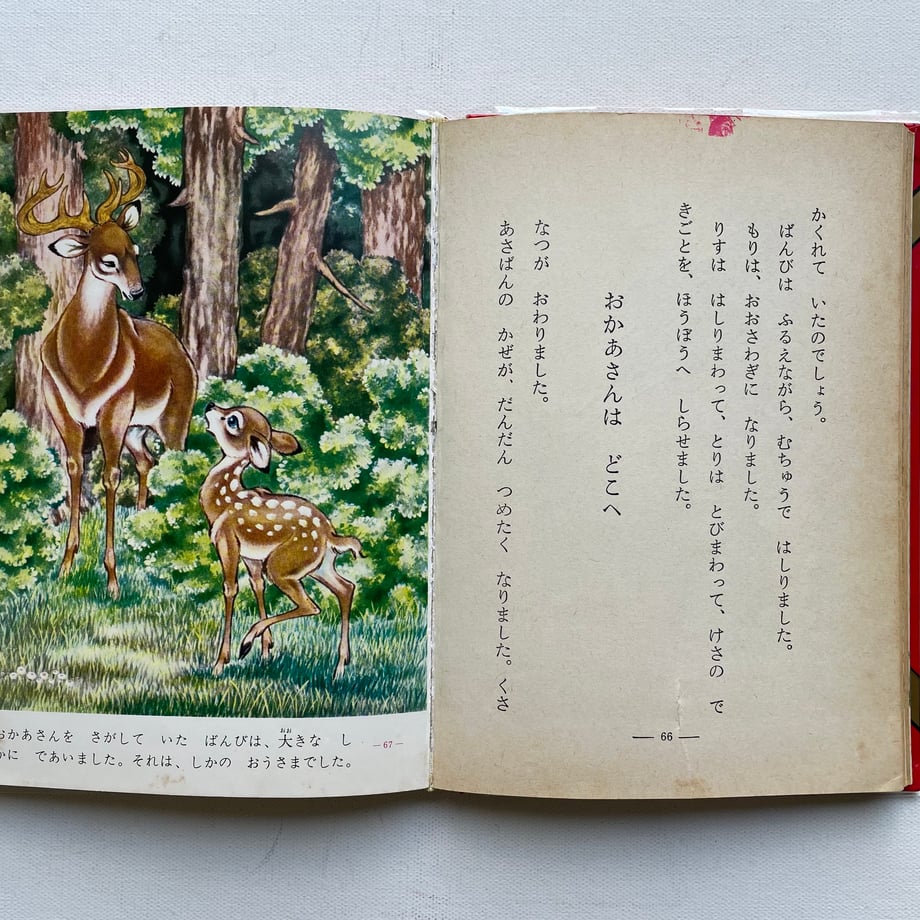 かくれて　いたのでしょう。
ばんびは　ふるえながら、むちゅうで　はしりました。
もりは、おおさわぎに　なりました。
りすは　はしりまわって、とりは　とびまわって、けさの　で
きごとを、ほうぼうへ　しらせました。
おかあさんは　どこへ
なつが　おわりました。
あさばんの　かぜが、だんだん　つめたく　なりました。くさ
— 66 —
おかあさんを　さがして　いた　ばんびは、大きな　し
おお
かに　であいました。それは、しかの　おうさまでした。
—67—